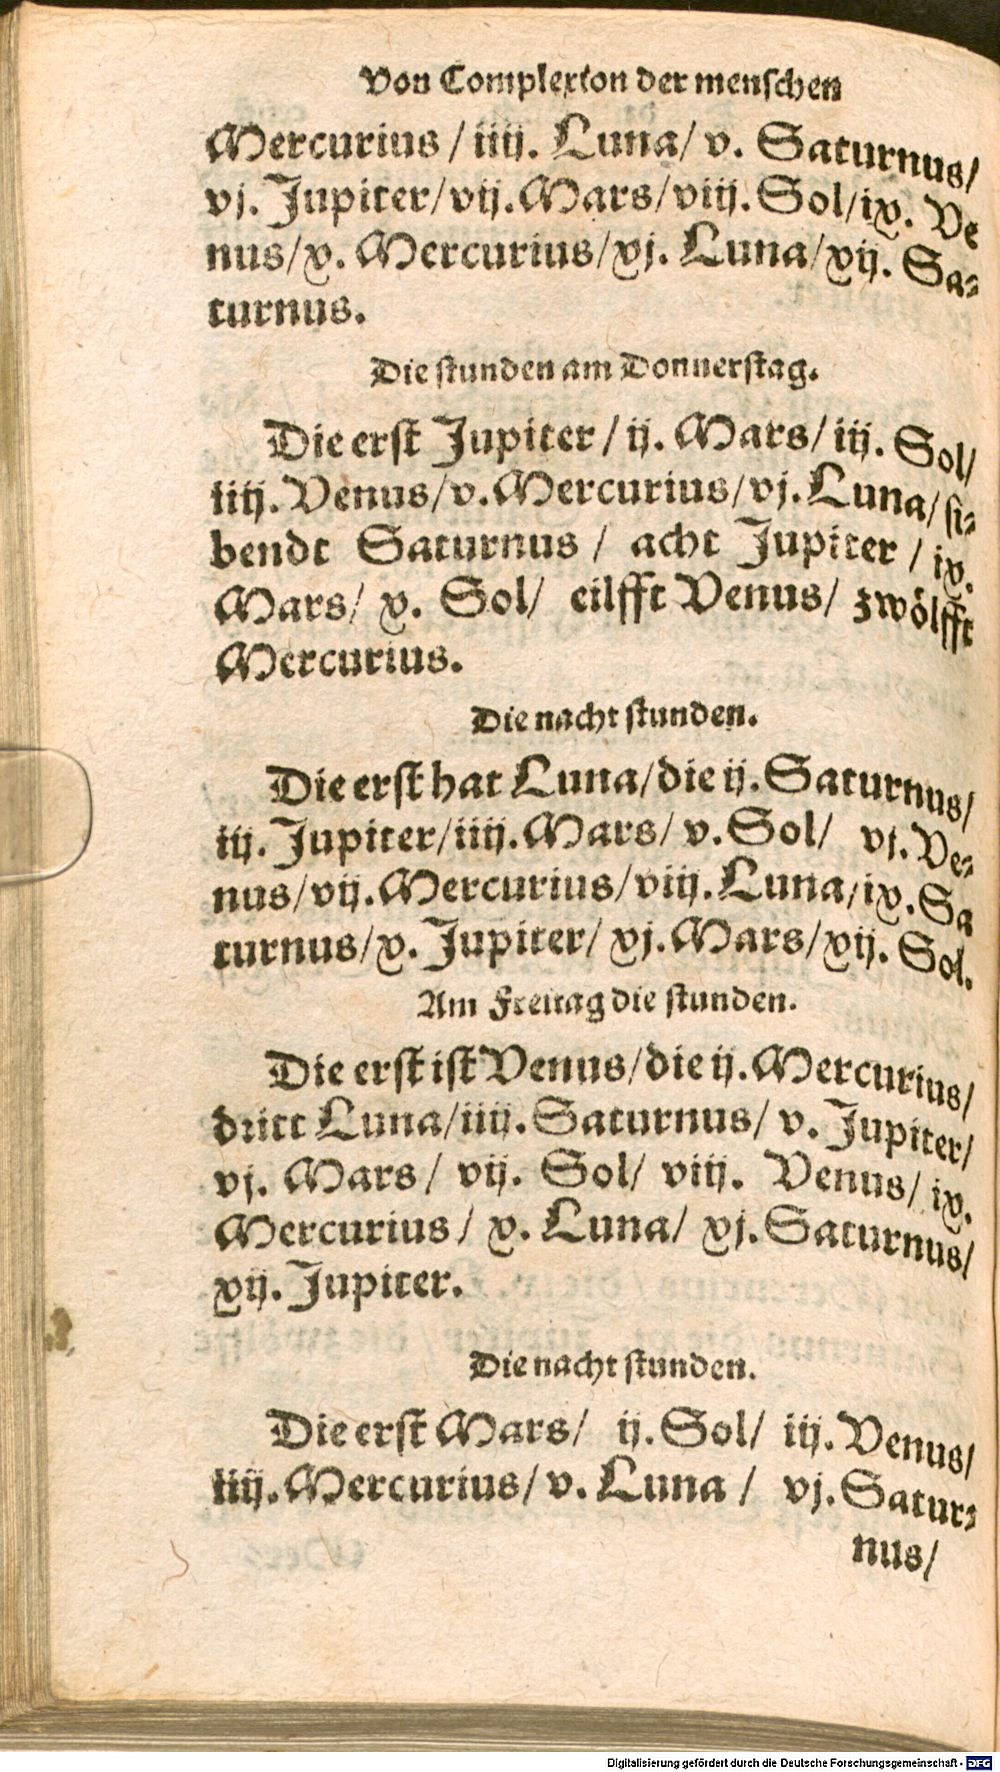 Von Complexion der menschen
Mercurius / iiij. Luna/ v. Saturnus/
vj. Jupiter/vij.Mars/viij.Sol/ix. Ve
nus/x. Mercurius/xj. Luna/xij. Sa⸗
turnus.
Die stunden am Donnerstag.
Die erst Jupiter / ij. Mars/ iij. Sol/
iiij. Venus/v.Mercurius/vj.Luna/si⸗
bendt Saturnus / acht Jupiter / ix.
Mars/ x. Sol/ eilfft Venus/ zwölfft
Mercurius.
Die nacht stunden.
Die erst hat Luna/die ij. Saturnus/
iij. Jupiter/iiij.Mars/ v.Sol/ vj.Ve⸗
nus/vij.Mercurius/viij.Luna/ix.Sa
turnus/x. Jupiter/ xj.Mars/xij. Sol.
Am Freitag die stunden.
Die erst ist Venus/die ij.Mercurius/
dritt Luna/iiij.Saturnus/ v. Jupiter/
vj. Mars / vij. Sol/ viij. Venus/ ix.
Mercurius/ x. Luna/ xj.Saturnus/
xij. Jupiter.
Die nacht stunden.
Die erst Mars/ ij.Sol/ iij.Venus/
iiij.Mercurius/v.Luna / vj.Satur⸗
nus/
Digitalisierung gefördert durch die Deutsche Forschungsgemeinschaft - DFG